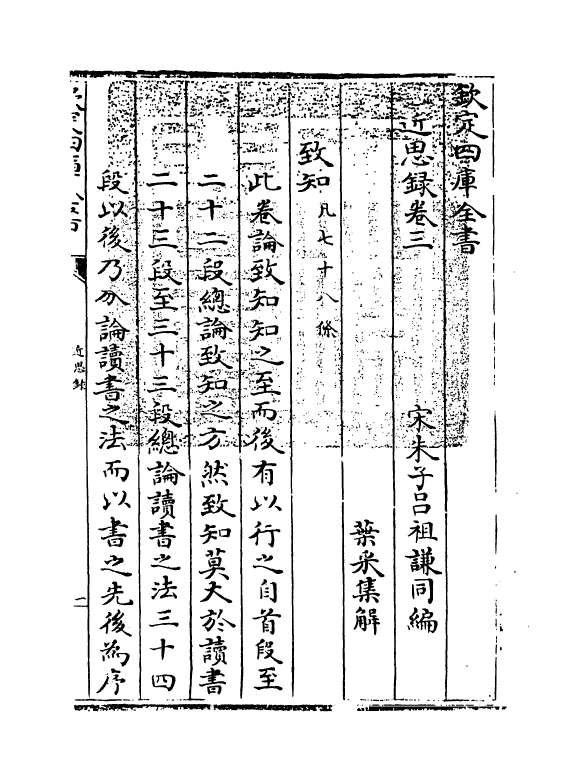 欽定四庫全書
近思録卷三
宋朱子呂祖謙同編
葉采集解
致知凡七十八條
此卷論致知知之至而後有以行之自首段至
二十二段總論致知之方然致知莫大於讀書
二十三段至三十三段總論讀書之法三十四
段以後乃分論讀書之法而以書之先後為序
近思録